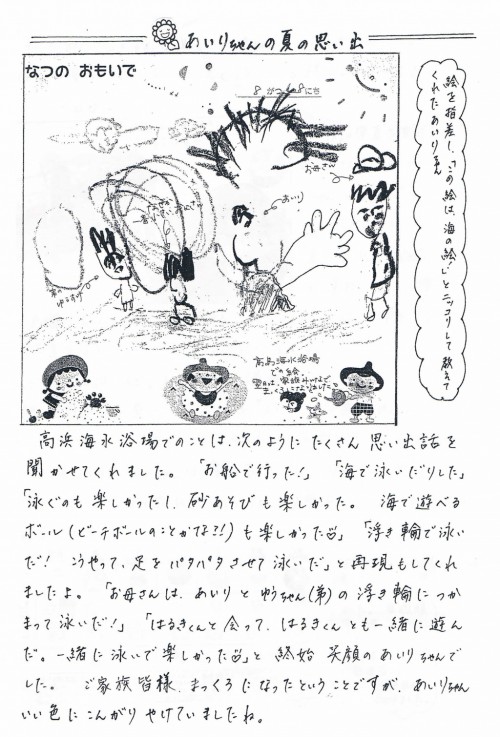 あいりちゃんの夏の思い出
なつの おもいで
8がつ 8にち
絵を指差し、「この絵は、海の絵!」とニッコリして教えて
くれたあいりちゃん
お母さん
あいり
高浜海水浴場
での絵
高浜海水浴場でのことは、次のように たくさん 思い出話を
聞かせてくれました。 「お船で行った!」 「海で泳いだりした」
「泳ぐのも楽しかったし、砂あそびも楽しかった。 海で遊べる
ボール(ビーチボールのことかな?!)も楽しかった」 「浮き輪で泳い
だ! こうやって、足をパタパタさせて泳いだ」と再現もしてくれ
ましたよ。 「お母さんは、あいりとゆうちゃん(弟)の浮き輪につか
まって泳いだ!」 「はるきくんと会って、はるきくんとも一緒に遊ん
だ。一緒に泳いで楽しかった」と 終始 笑顔のあいりちゃんで
した。 ご家族皆様、まっくろになったということですが、あいりちゃん
いい色にこんがり やけていましたね。